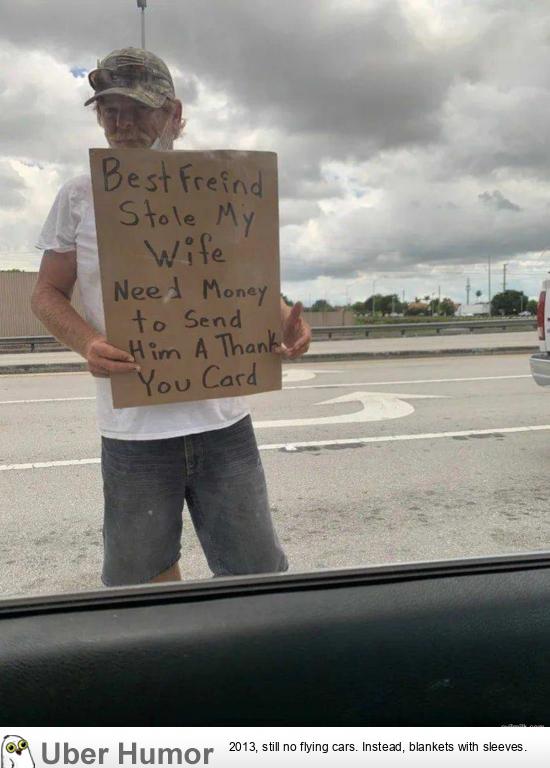 Best Freind
Stole My
Wife
Need Money
to Send
Him A Thank
You Card
Uber Humor
2013, still no flying cars. Instead, blankets with sleeves.